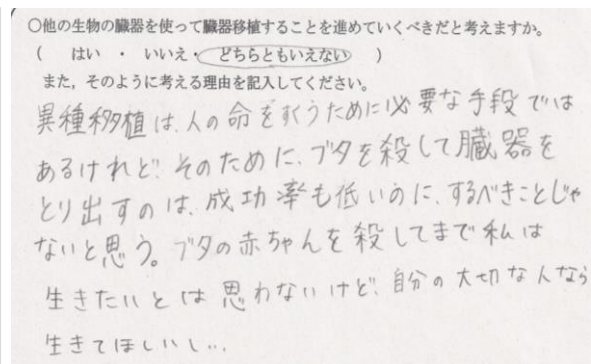 ○他の生物の臓器を使って臓器移植することを進めていくべきだと考えますか。
( はい ・ いいえ・ どちらともいえない )
また，そのように考える理由を記入してください。
異種移植は、人の命をすくうために必要な手段では
あるけれど、そのために、ブタを殺して臓器を
とり出すのは、成功率も低いのに、するべきことじゃ
ないと思う。ブタの赤ちゃんを殺してまで私は
生きたいとは思わないけど、自分の大切な人なら
生きてほしいし…